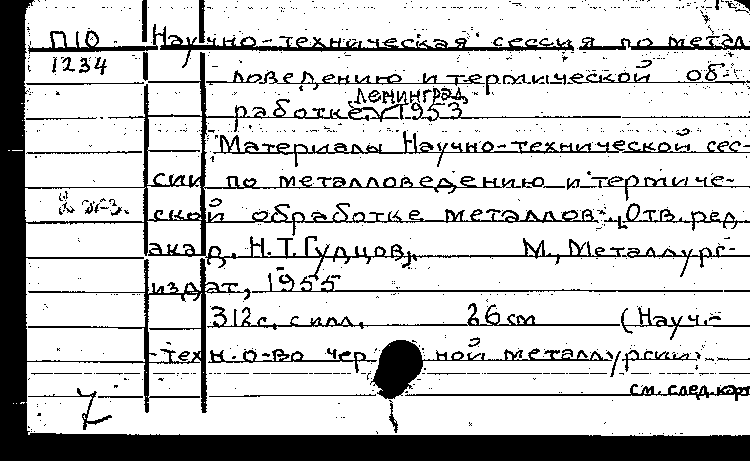 П10 Научно-техническая сессия по метал
1234 ловедению и термической об-
Ленинград,
работке. 1953
Материалы Научно-технической сес-
сии по металловедению и термиче-
2 экз. ской обработке металлов. Отв. ред.
акад. Н.Т. Гудцов. М., Металлург-
издат, 1955
312с. с илл. 26см (Науч.-
-техн. о-во чер ной металлургии)
см. след. карт
7